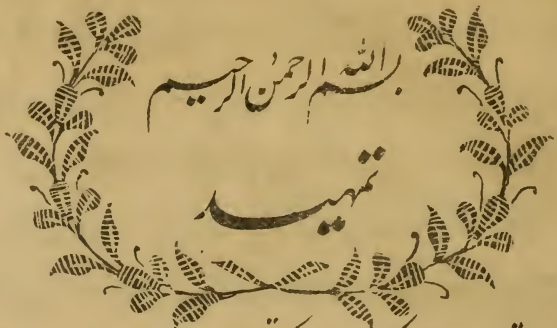 بسم الله الرحمٰن الرحیم
تمہید